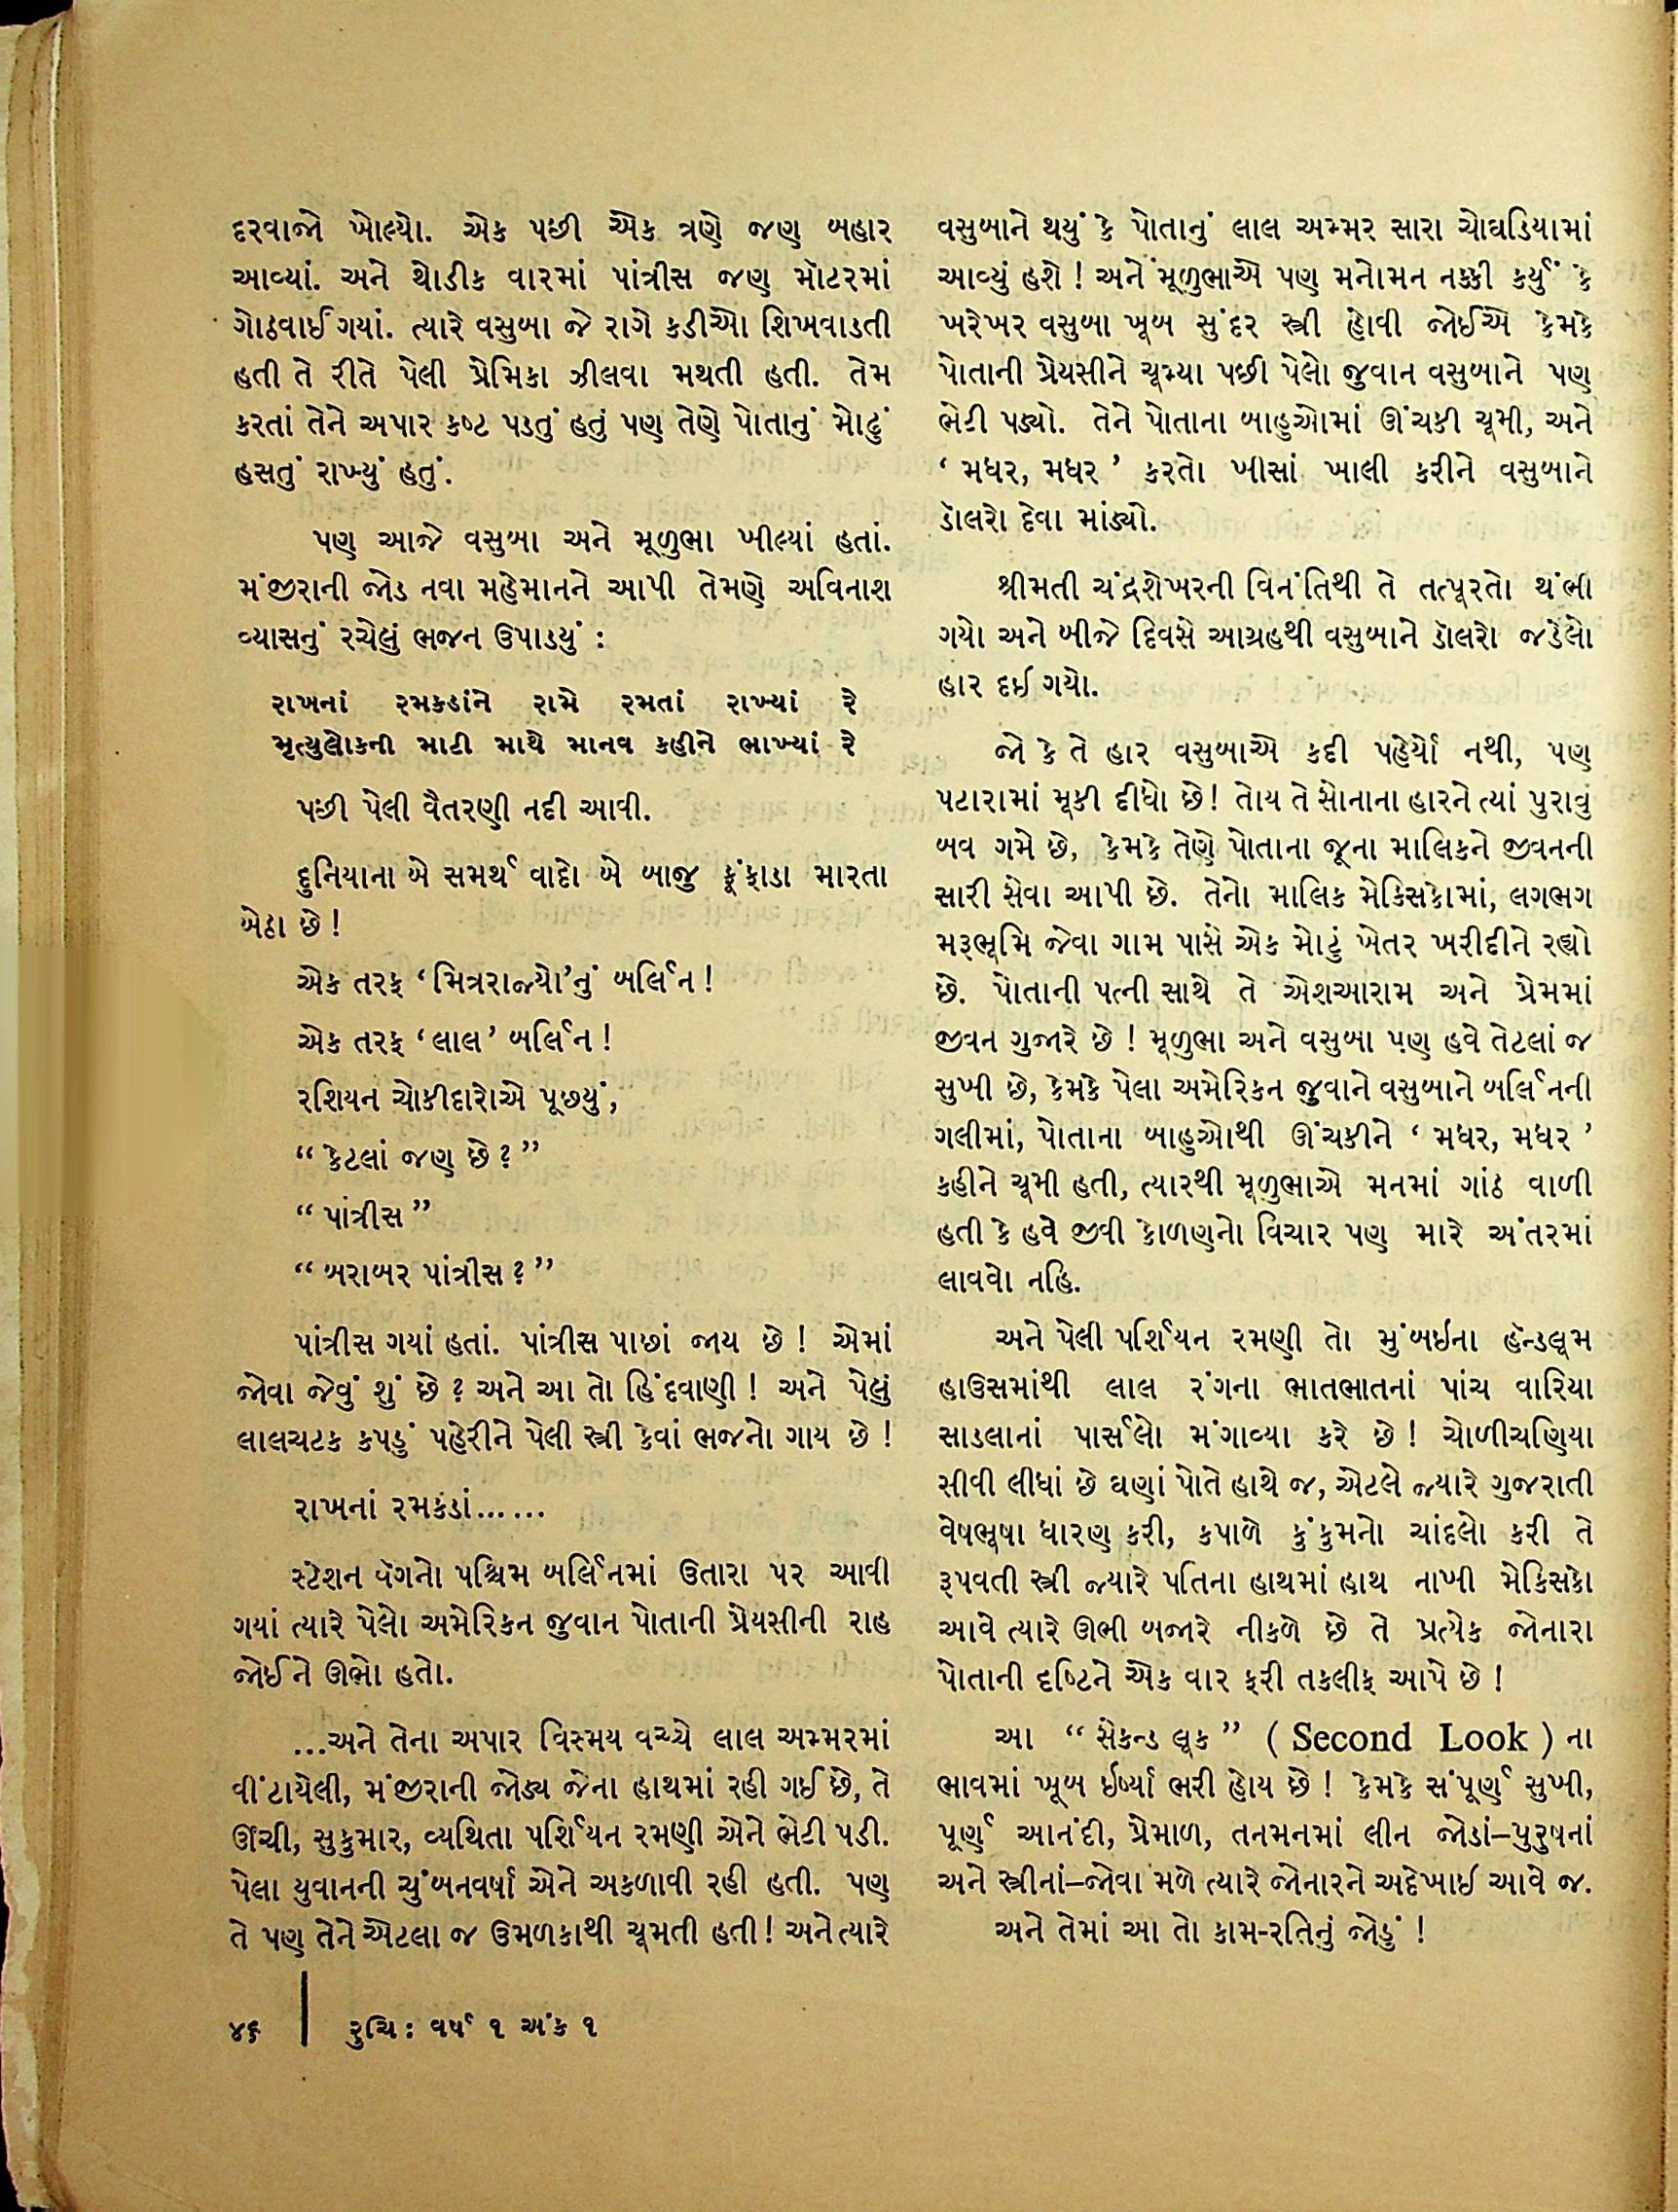 દરવાજો ખોલ્યો. એક પછી એક ત્રણે જણ બહાર
આવ્યાં. અને થોડીક વારમાં પાંત્રીસ જણ મૉટરમાં
ગોઠવાઈ ગયાં. ત્યારે વસુબા જે રાગે કડીઓ શિખવાડતી
હતી તે રીતે પેલી પ્રેમિકા ઝીલવા મથતી હતી. તેમ
કરતાં તેને અપાર કષ્ટ પડતું હતું પણ તેણે પોતાનું મોઢું
હસતું રાખ્યું હતું.
પણ આજે વસુબા અને મૂળુભા ખીલ્યાં હતાં.
મંજીરાની જોડ નવા મહેમાનને આપી તેમણે અવિનાશ
વ્યાસનું રચેલું ભજન ઉપાડયું :
રાખનાં રમકડાંને રામે રમતાં રાખ્યાં રે
મૃત્યુલોકની માટી માથે માનવ કહીને ભાખ્યાં રે
પછી પેલી વૈતરણી નદી આવી.
દુનિયાના બે સમર્થ વાદો બે બાજુ ફૂંફાડા મારતા
બેઠા છે !
એક તરફ ‘મિત્રરાજ્યો’નું બર્લિન !
એક તરફ ‘લાલ’ બર્લિન !
રશિયન ચોકીદારોએ પૂછયું,
“ કેટલાં જણ છે ? ”
“ પાંત્રીસ ”
“ બરાબર પાંત્રીસ ? ”
પાંત્રીસ ગયાં હતાં. પાંત્રીસ પાછાં જાય છે ! એમાં
જોવા જેવું શું છે ? અને આ તો હિંદવાણી ! અને પેલું
લાલચટક કપડું પહેરીને પેલી સ્ત્રી કેવાં ભજનો ગાય છે !
રાખનાં રમકડાં......
સ્ટેશન વૅગનો પશ્ચિમ બર્લિનમાં ઉતારા પર આવી
ગયાં ત્યારે પેલો અમેરિકન જુવાન પોતાની પ્રેયસીની રાહ
જોઈને ઊભો હતો.
...અને તેના અપાર વિસ્મય વચ્ચે લાલ અમ્મરમાં
વીંટાયેલી, મંજીરાની જોડ્ય જેના હાથમાં રહી ગઈ છે, તે
ઊંચી, સુકુમાર, વ્યથિતા પર્શિયન રમણી એને ભેટી પડી.
પેલા યુવાનની ચુંબનવર્ષા એને અકળાવી રહી હતી. પણ
તે પણ તેને એટલા જ ઉમળકાથી ચૂમતી હતી ! અને ત્યારે
વસુબાને થયું કે પોતાનું લાલ અમ્મર સારા ચોઘડિયામાં
આવ્યું હશે ! અને મૂળુભાએ પણ મનોમન નક્કી કર્યું કે
ખરેખર વસુબા ખૂબ સુંદર સ્ત્રી હોવી જોઈએ કેમકે
પોતાની પ્રેયસીને ચૂમ્યા પછી પેલો જુવાન વસુબાને પણ
ભેટી પડ્યો. તેને પોતાના બાહુઓમાં ઊંચકી ચૂમી, અને
‘ મધર, મધર ’ કરતો ખીસાં ખાલી કરીને વસુબાને
ડૉલરો દેવા માંડ્યો.
શ્રીમતી ચંદ્રશેખરની વિનંતિથી તે તત્પૂરતો થંભી
ગયો અને બીજે દિવસે આગ્રહથી વસુબાને ડૉલરો જડેલો
હાર દઈ ગયો.
જો કે તે હાર વસુબાએ કદી પહેર્યો નથી, પણ
પટારામાં મૂકી દીધો છે ! તોય તે સોનાના હારને ત્યાં પુરાવું
બવ ગમે છે, કેમકે તેણે પોતાના જૂના માલિકને જીવનની
સારી સેવા આપી છે. તેનો માલિક મેક્સિકોમાં, લગભગ
મરૂભૂમિ જેવા ગામ પાસે એક મોટું ખેતર ખરીદીને રહ્યો
છે. પોતાની પત્ની સાથે તે એશઆરામ અને પ્રેમમાં
જીવન ગુજારે છે ! મૂળુભા અને વસુબા પણ હવે તેટલાં જ
સુખી છે, કેમકે પેલા અમેરિકન જુવાને વસુબાને બર્લિનની
ગલીમાં, પોતાના બાહુઓથી ઊંચકીને ‘ મધર, મધર ’
કહીને ચૂમી હતી, ત્યારથી મૂળુભાએ મનમાં ગાંઠ વાળી
હતી કે હવે જીવી કોળણનો વિચાર પણ મારે અંતરમાં
લાવવો નહિ.
અને પેલી પર્શિયન રમણી તો મુંબઇના હૅન્ડલૂમ
હાઉસમાંથી લાલ રંગના ભાતભાતનાં પાંચ વારિયા
સાડલાનાં પાર્સલો મંગાવ્યા કરે છે ! ચોળીચણિયા
સીવી લીધાં છે ઘણાં પોતે હાથે જ, એટલે જ્યારે ગુજરાતી
વેષભૂષા ધારણ કરી, કપાળે કુંકુમનો ચાંદલો કરી તે
રૂપવતી સ્ત્રી જ્યારે પતિના હાથમાં હાથ નાખી મેક્સિકો
આવે ત્યારે ઊભી બજારે નીકળે છે તે પ્રત્યેક જોનારા
પોતાની દૃષ્ટિને એક વાર ફરી તકલીફ આપે છે !
આ “ સેકન્ડ લૂક ” ( Second Look ) ના
ભાવમાં ખૂબ ઈર્ષ્યા ભરી હોય છે ! કેમકે સંપૂર્ણ સુખી,
પૂર્ણ આનંદી, પ્રેમાળ, તનમનમાં લીન જોડાં–પુરુષનાં
અને સ્ત્રીનાં–જોવા મળે ત્યારે જોનારને અદેખાઈ આવે જ.
અને તેમાં આ તો કામ-રતિનું જોડું !
૪૬ | રુચિ : વર્ષ ૧ અંક ૧